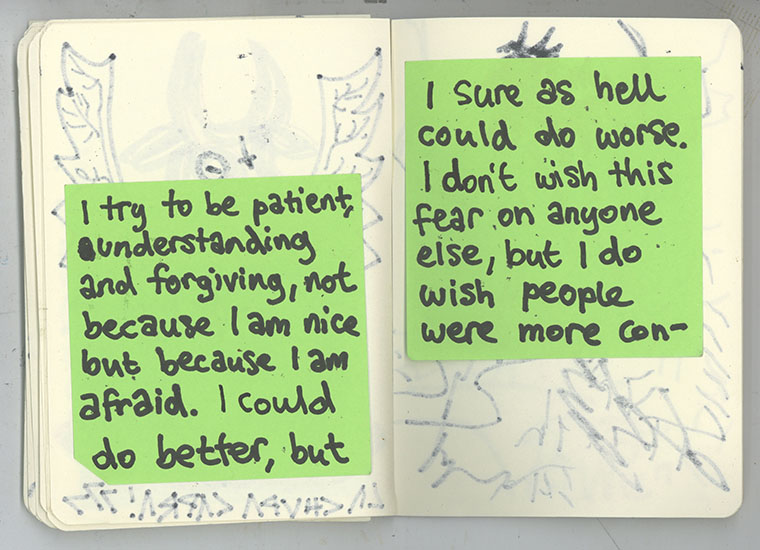 I try to be patient,
understanding
and forgiving, not
because I am nice
but because I am
afraid. I could
do better, but
I sure as hell
could do worse.
I don't wish this
fear on anyone
else, but I do
wish people
were more con-